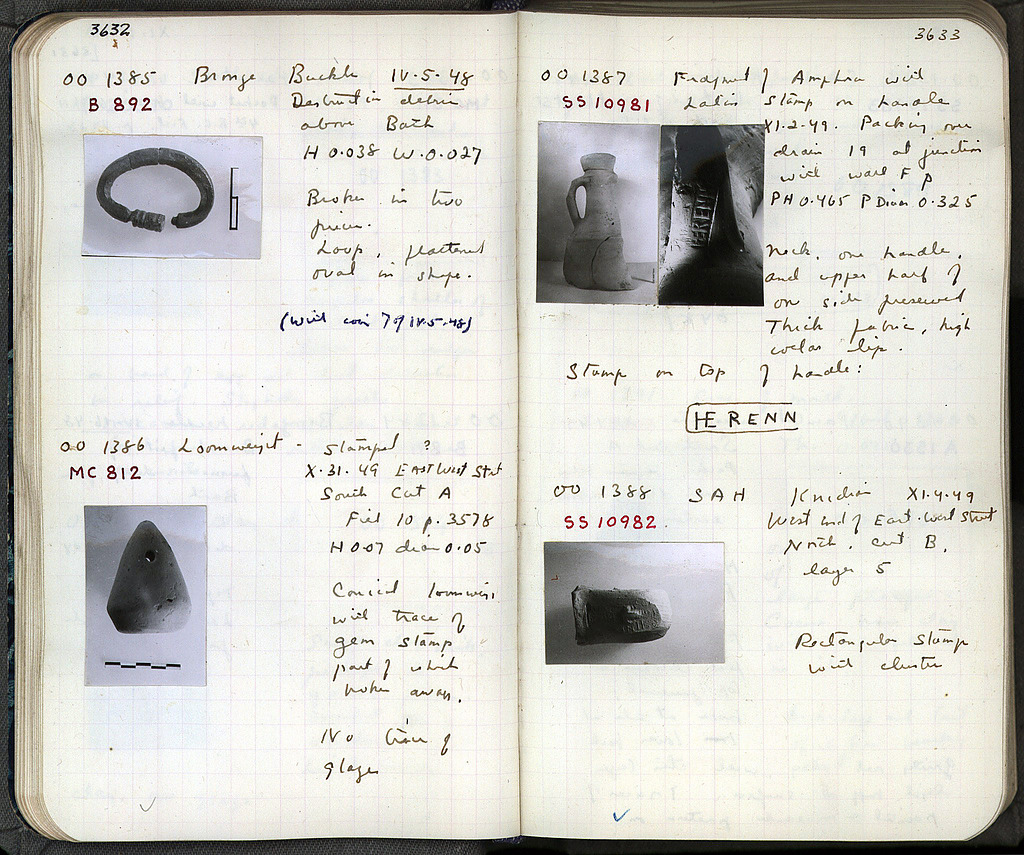 3632
OO 1385 Bronze Buckle IV.5.48
B 892 Destruction debris
above Bath
H 0.038 W. 0.027
Broken in two
pieces.
Loop, flattened
oval in shape.
(With coin 7 of IV.5.48)
OO 1386 Loomweight - Stamped ?
MC 812 X.31.49 East West Street
South Cut A
Fill 10 p. 3578
H 0.07 diam 0.05
Conical loomweight
with trace of
gem stamp
part of which
broken away.
No trace of
glaze
3633
OO 1387 Fragment of Amphora with
SS 10981 Latin stamp on handle
XI.2.49. Packing over
drain 19 at junction
with wall F p
PH 0.465 P Diam 0.325
Neck, one handle,
and upper half of
one side preserved
Thick fabric, high
collar lip.
Stamp on top of handle:
HERENN
OO 1388 SAH Knidian XI.4.49
SS 10982 West end of East-West Street
North, Cut B,
layer 5
Rectangular stamp
with cluster